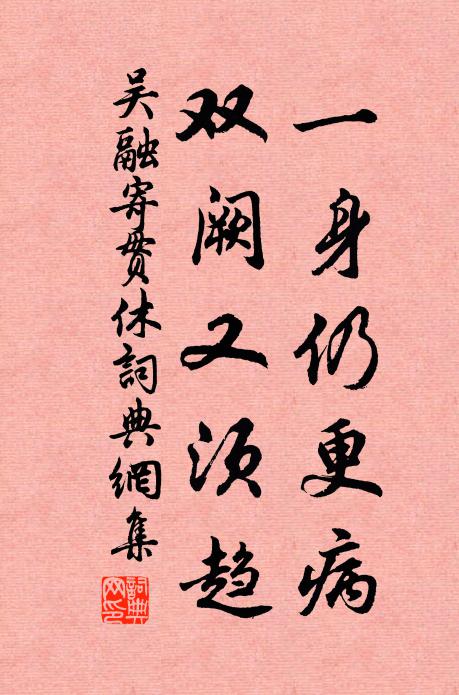 一身仍更病
双阙又须趋
吴融寄贯休詞典網集
詞典網印